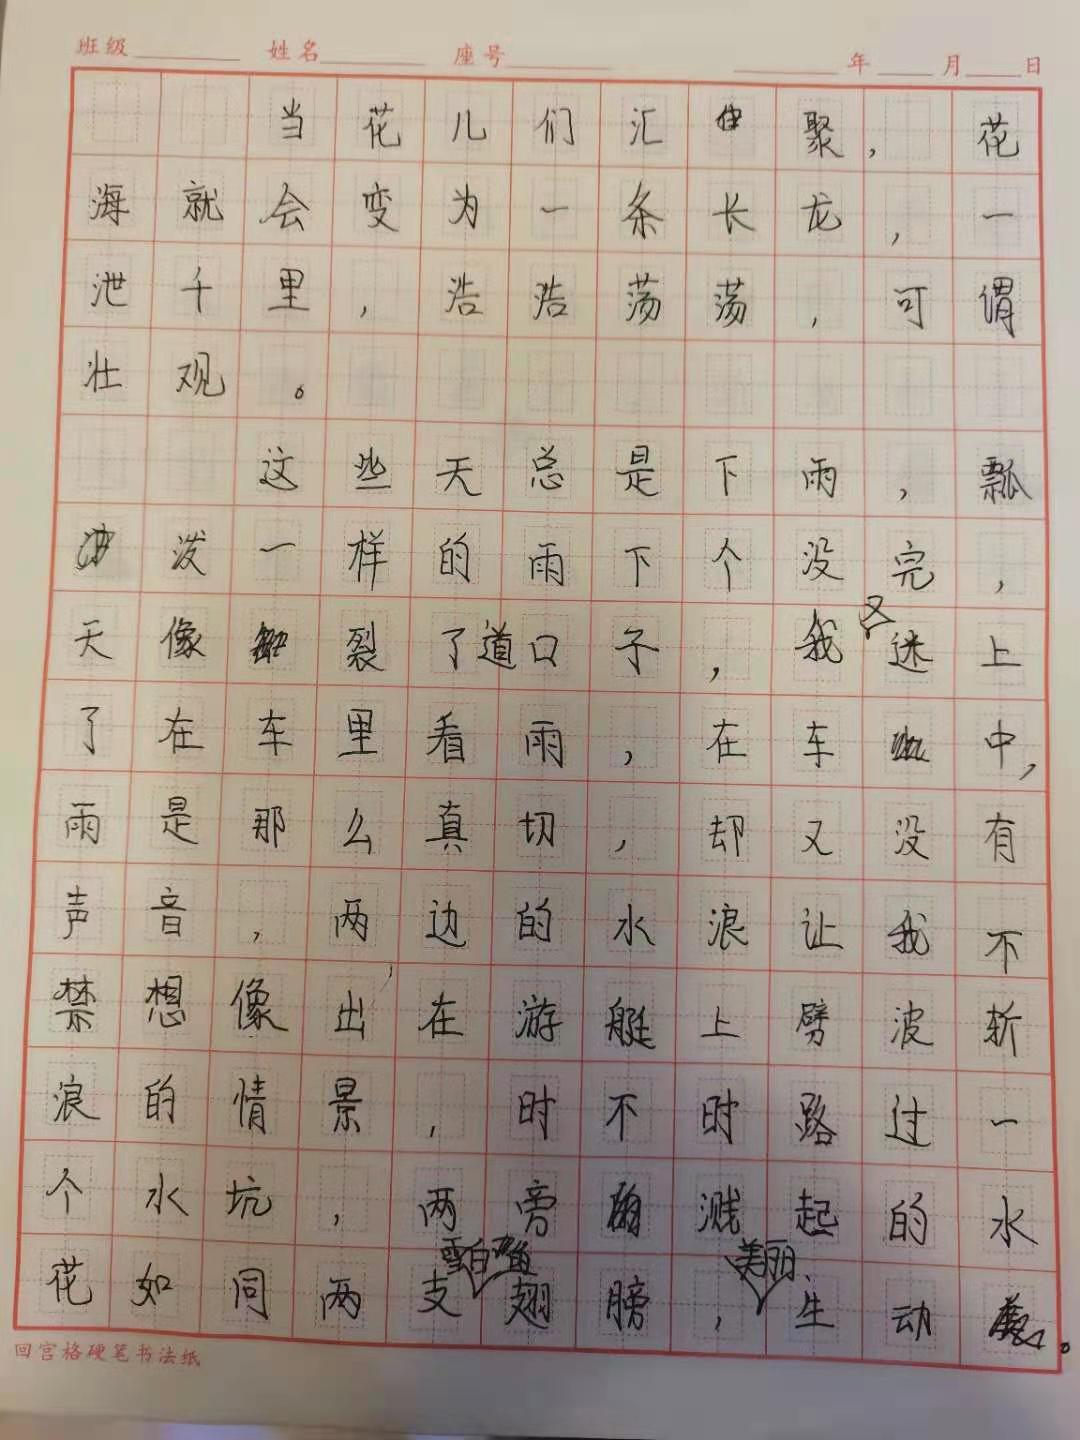 班级 姓名 座号 年 月 日
当花儿们汇聚，花
海就会变为一条长龙，一
泄千里，浩浩荡荡，可谓
壮观。
这些天总是下雨，瓢
泼一样的雨下个没完，
天像裂了道口子，我又迷上
了在车里看雨，在车中，
雨是那么真切，却又没有
声音，两边的水浪让我不
禁想像出，在游艇上劈波斩
浪的情景，时不时路过一
个水坑，两旁溅起的水
花如同两支雪白的翅膀，美丽、生动。
回宫格硬笔书法纸